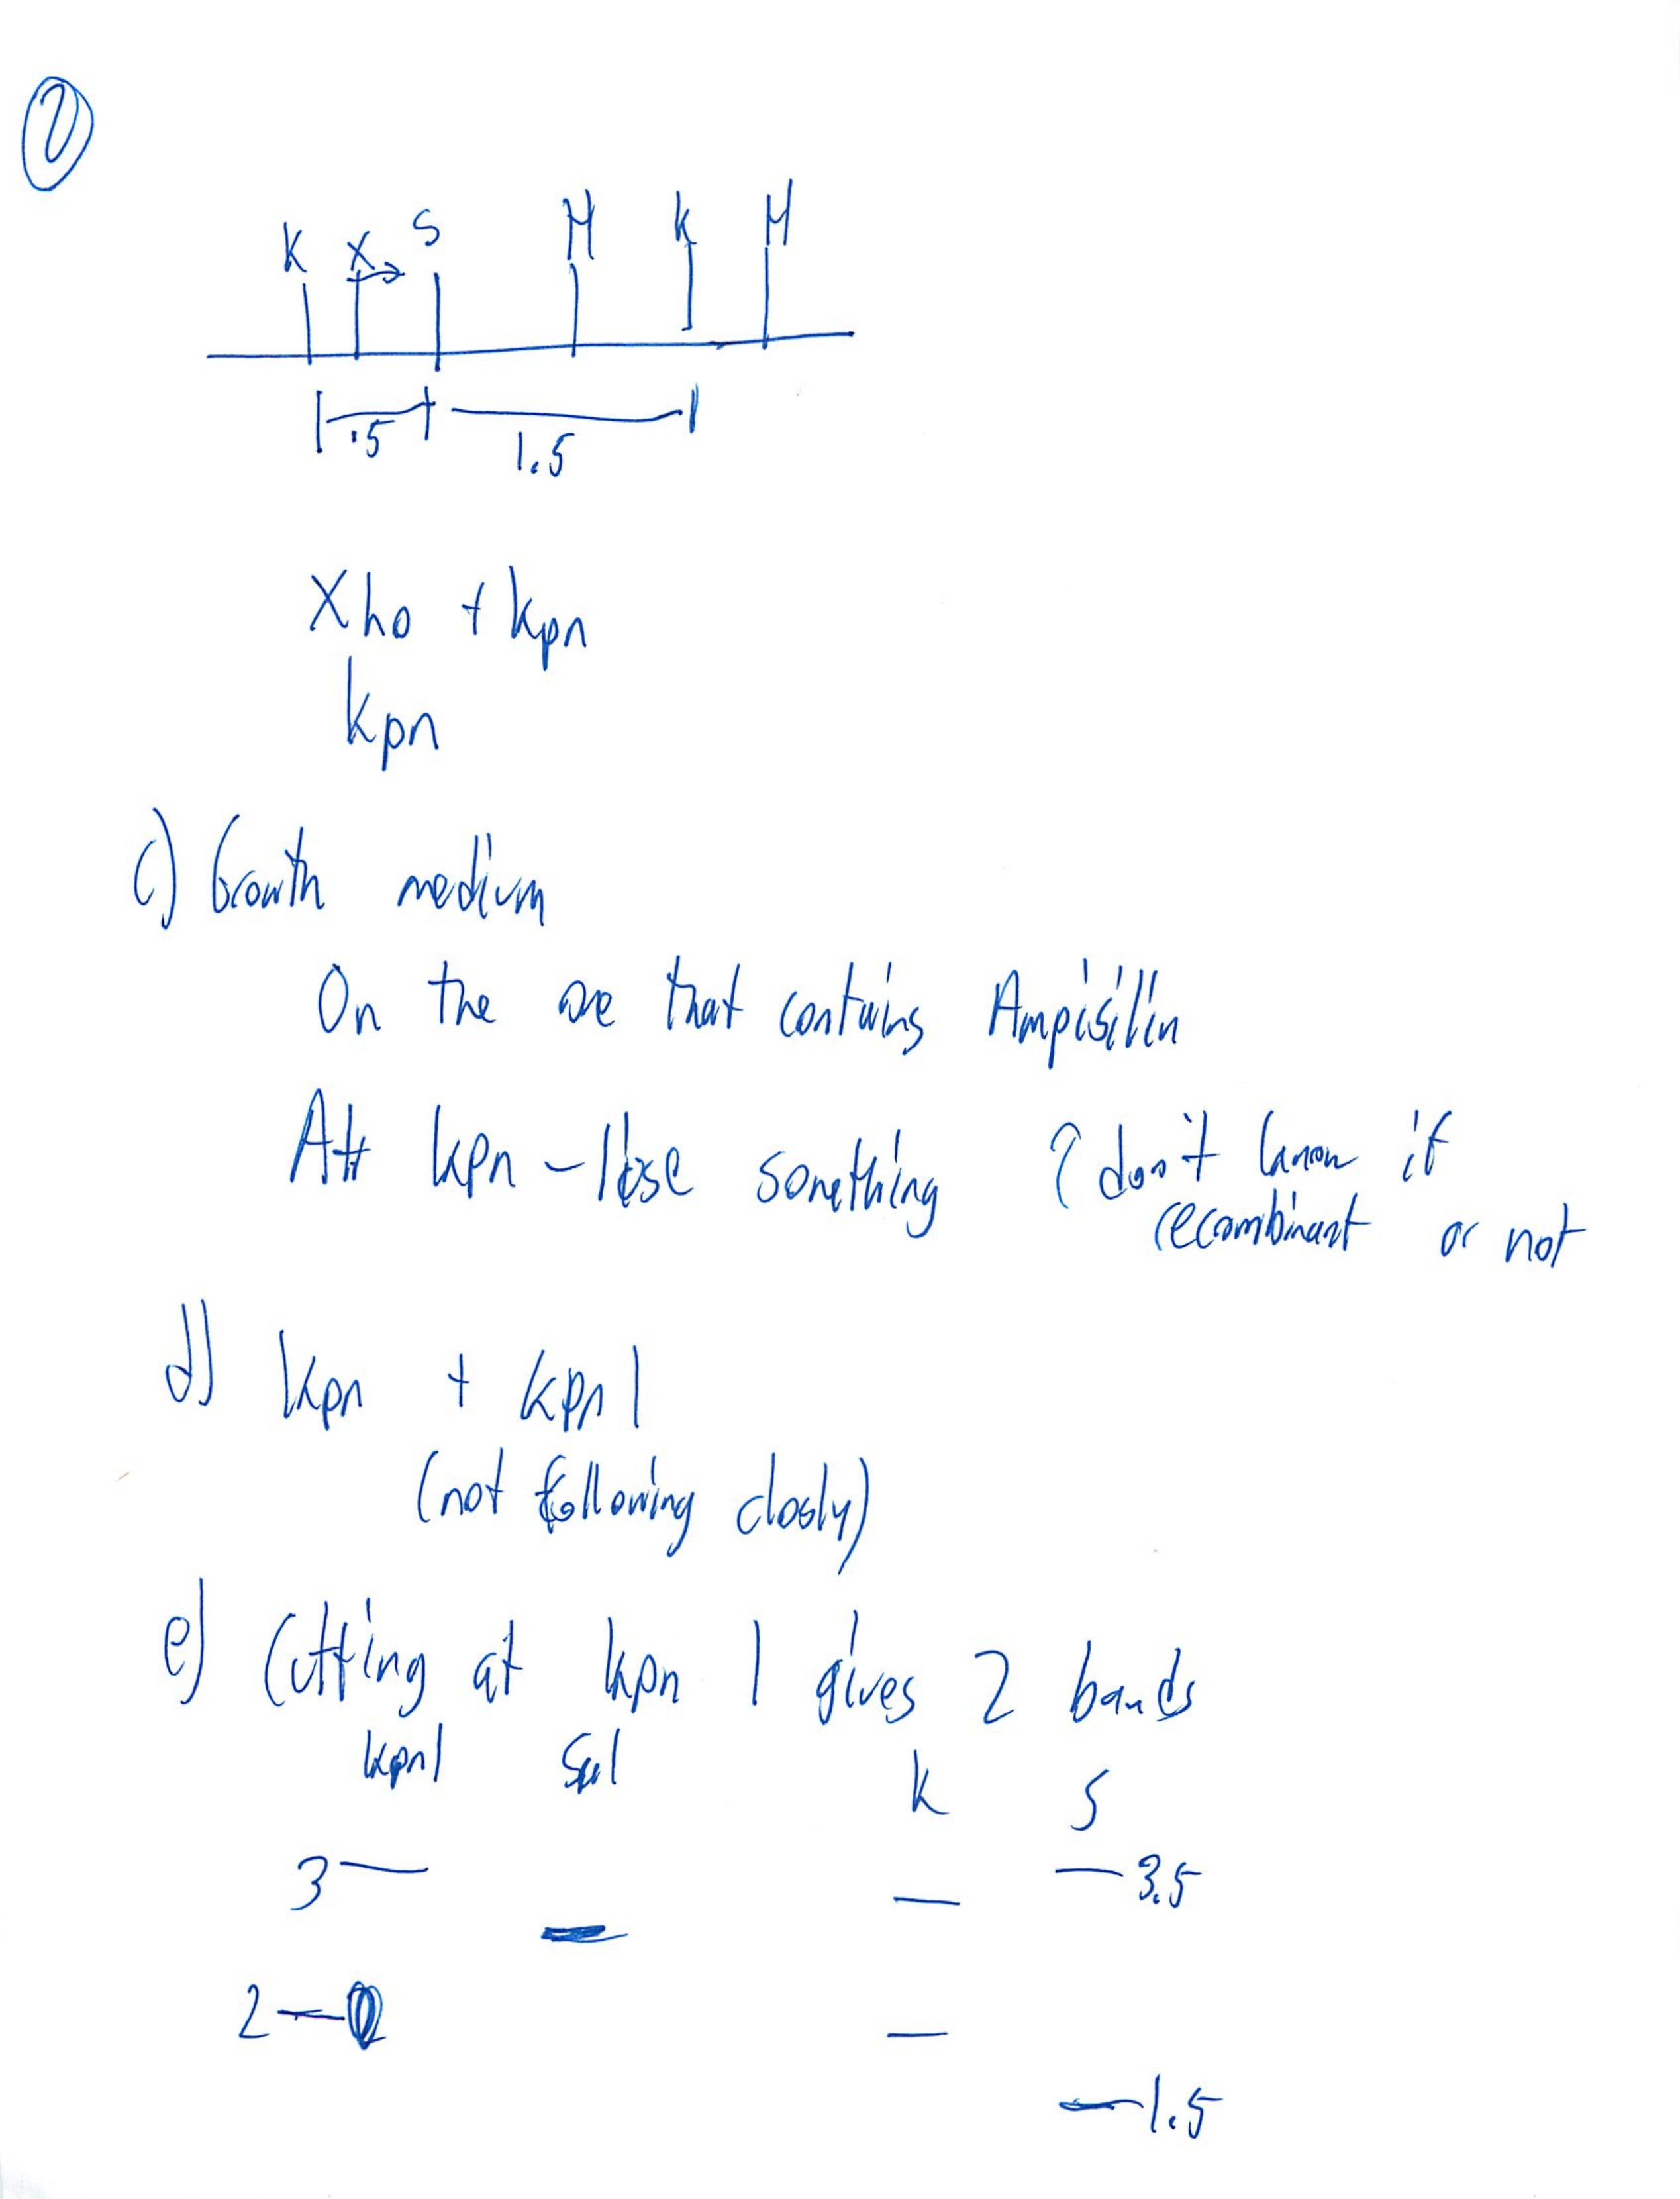 1
K X S H K H
.5 1.5
Xho + kpn
kpn
c) Growth medium
On the one that contains Ampisilin
At kpn - lose something ? don't know if
recombinant or not
d) kpn + kpn1
(not following closly)
e) Cutting at kpn 1 gives 2 bands
kpn1 Sal k S
3 3.5
2
1.5